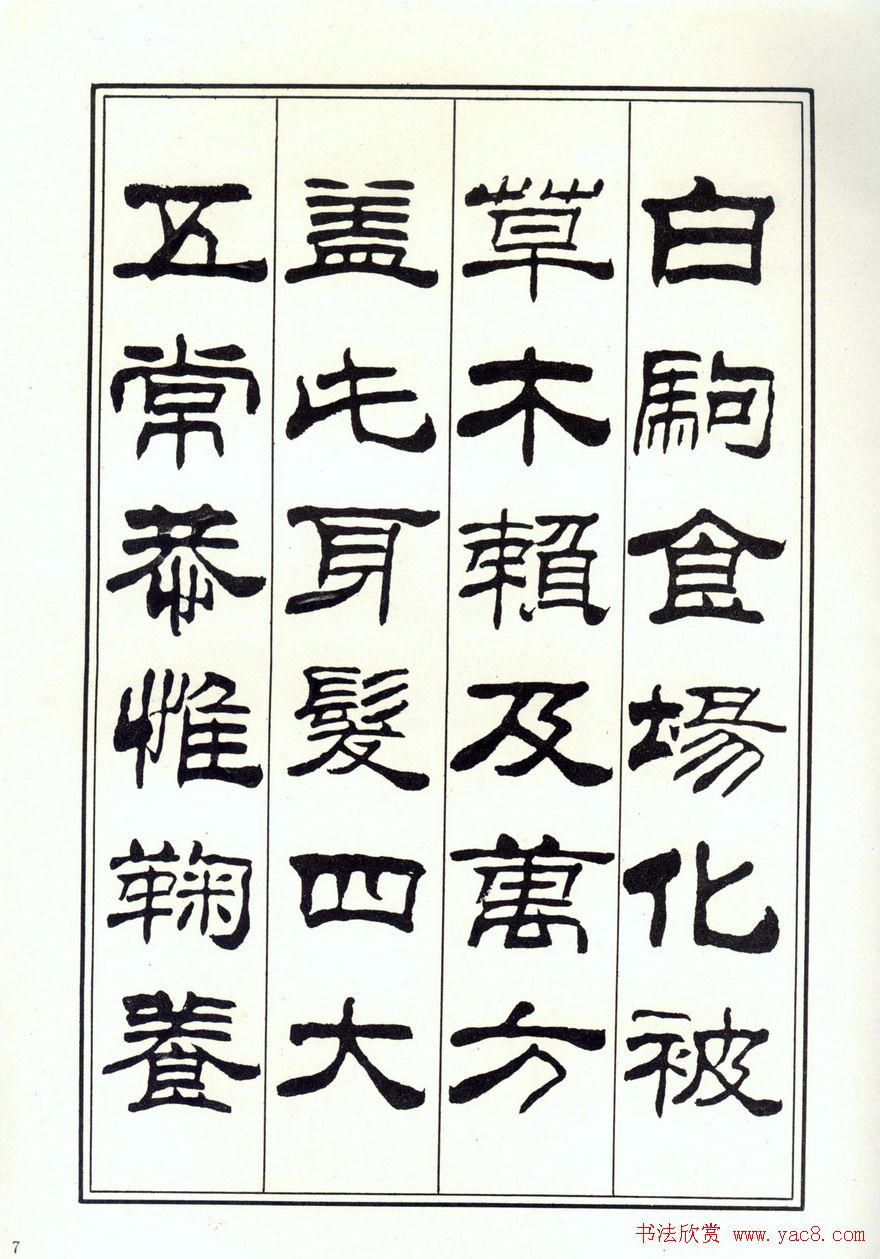 白駒食場化被
草木賴及萬方
盖此身髮四大
五常恭惟鞠養
7
书法欣赏 www.yac8.com